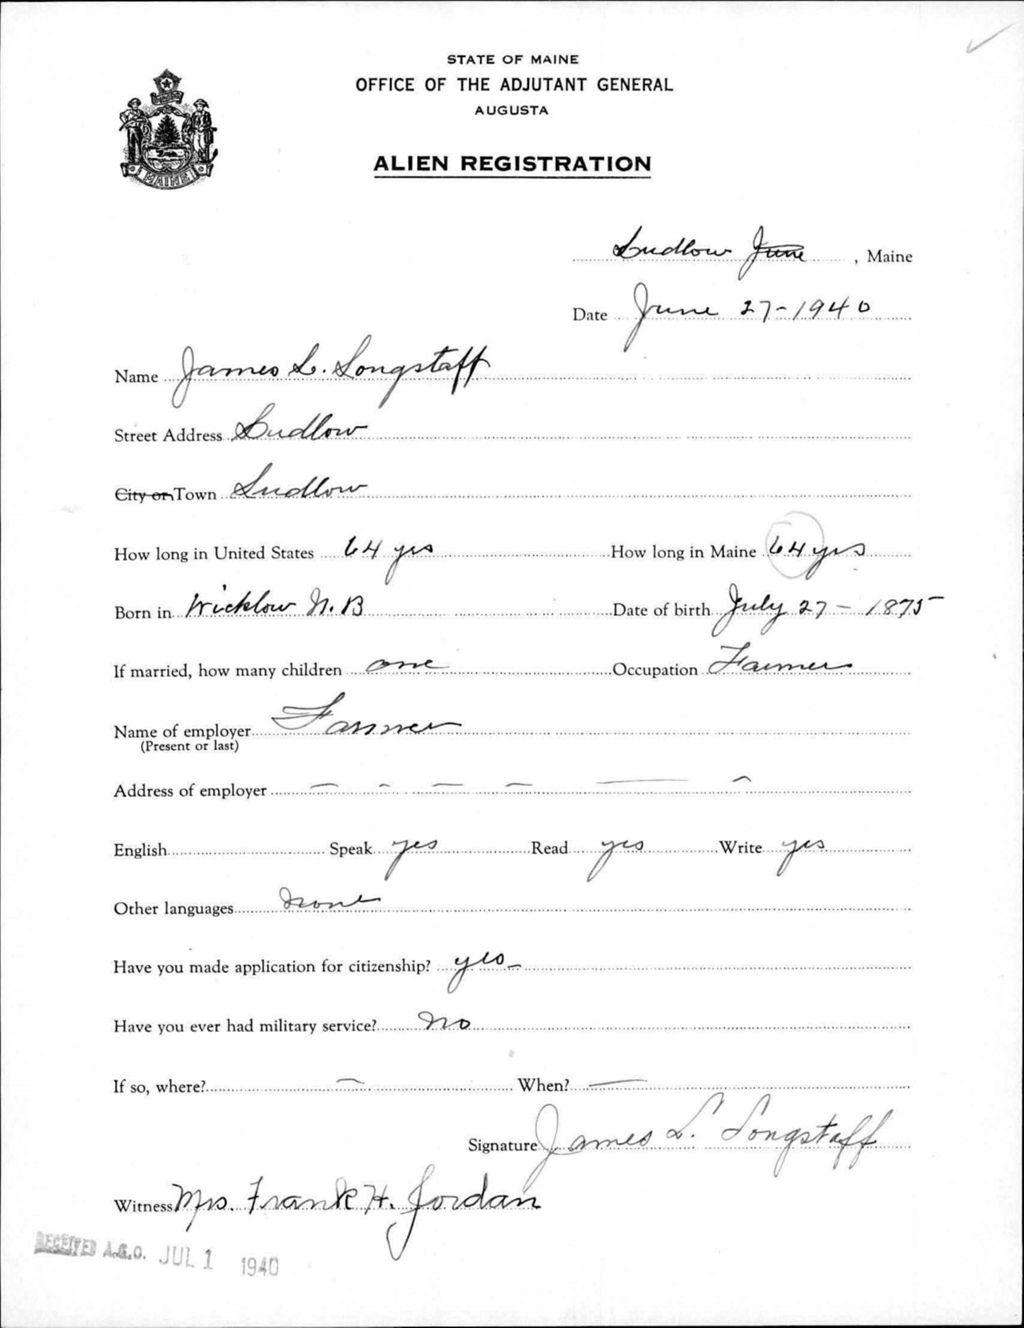 STATE OF MAINE
OFFICE OF THE ADJUTANT GENERAL
AUGUSTA
MAINE
ALIEN REGISTRATION
Ludlow June, Maine
Date June 27-1940
Name James L. Longstaff
Street Address Ludlow
City or Town Ludlow
How long in United States 64 yrs How long in Maine 64 yrs
Born in Wicklow N.B Date of birth July 27-1875
If married, how many children one Occupation Farmer
Name of employer Farmer
(Present or last)
Address of employer - - - - - -
English Speak yes Read yes Write yes
Other languages none
Have you made application for citizenship? yes
Have you ever had military service? No
If so, where? - When? -
Signature James L. Longstaff
Witness Mrs. Frank H. Jordan
RECEIVED A.G.O. JUL 1 1940